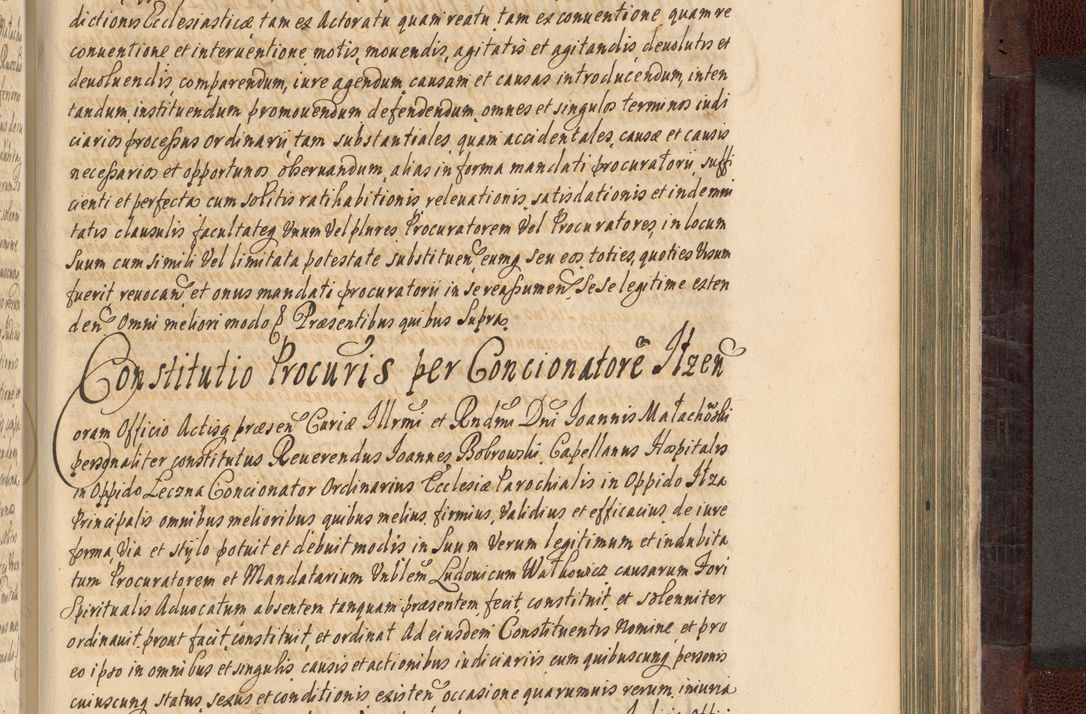 dictionis Ecclesiasticæ tam ex Actoratu quam reatu tam ex conventione quam re
conventione et interventione motis, movendis, agitatis et agitandis, devolutis et
devoluendis, comparendum, iure agendum, causam et causas introducendum, inten
tandum, instituendum promovendum defendendum, omnes et singulos terminos iudi
ciarios processus ordinarij, tam substantiales quam accidentales, causæ et causis
necessarios et opportunos observandum, alias in forma mandati procuratorij suffi
cienti et perfecta, cum solitis ratihabitionis, relevationis, satisdationis et indemni
tatis clausulis facultateq Unum Vel plures Procuratorem Vel Procuratores, in locum
suum cum simili Vel limitata potestate substituen̄, eumq seu eos toties, quoties Visum
fuerit revocan̄ et onus mandati procuratorii in se reassumen̄. Se se legitime exten
den̄. Omni meliori modo P Præsentibus quibus supra.
Constitutio Procuris per Concionatorē Itzen̄
oram Officio Actisq præsen̄ Curiæ Illrmi et Rndmi Dni Ioannis Małachoski
personaliter constitutus Reverendus Ioannes Bobrowski, Capellanus Hospitalis
in Oppido Łeczna Concionator Ordinarius Ecclesiæ Parochialis in Oppido Itza
Principalis omnibus melioribus quibus melius, firmius, Validius et efficacius, de iure
forma, Via et stylo potuit et debuit modis in suum Verum legitimum et indubita
tum Procuratorem et Mandatarium Unblem̄ Ludovicum Walkowicz causarum Fori
Spiritualis Advocatum absentem tanquam præsentem fecit, constituit et solenniter
ordinavit, prout facit, constituit, et ordinat. Ad eiusdem Constituentis Nomine et pro
eo ipso in omnibus et singulis causis et actionibus iudiciariis cum quibuscunq personis
cuiuscunq status, sexus et conditionis existen̄ occasione quarumvis rerum, iniuria